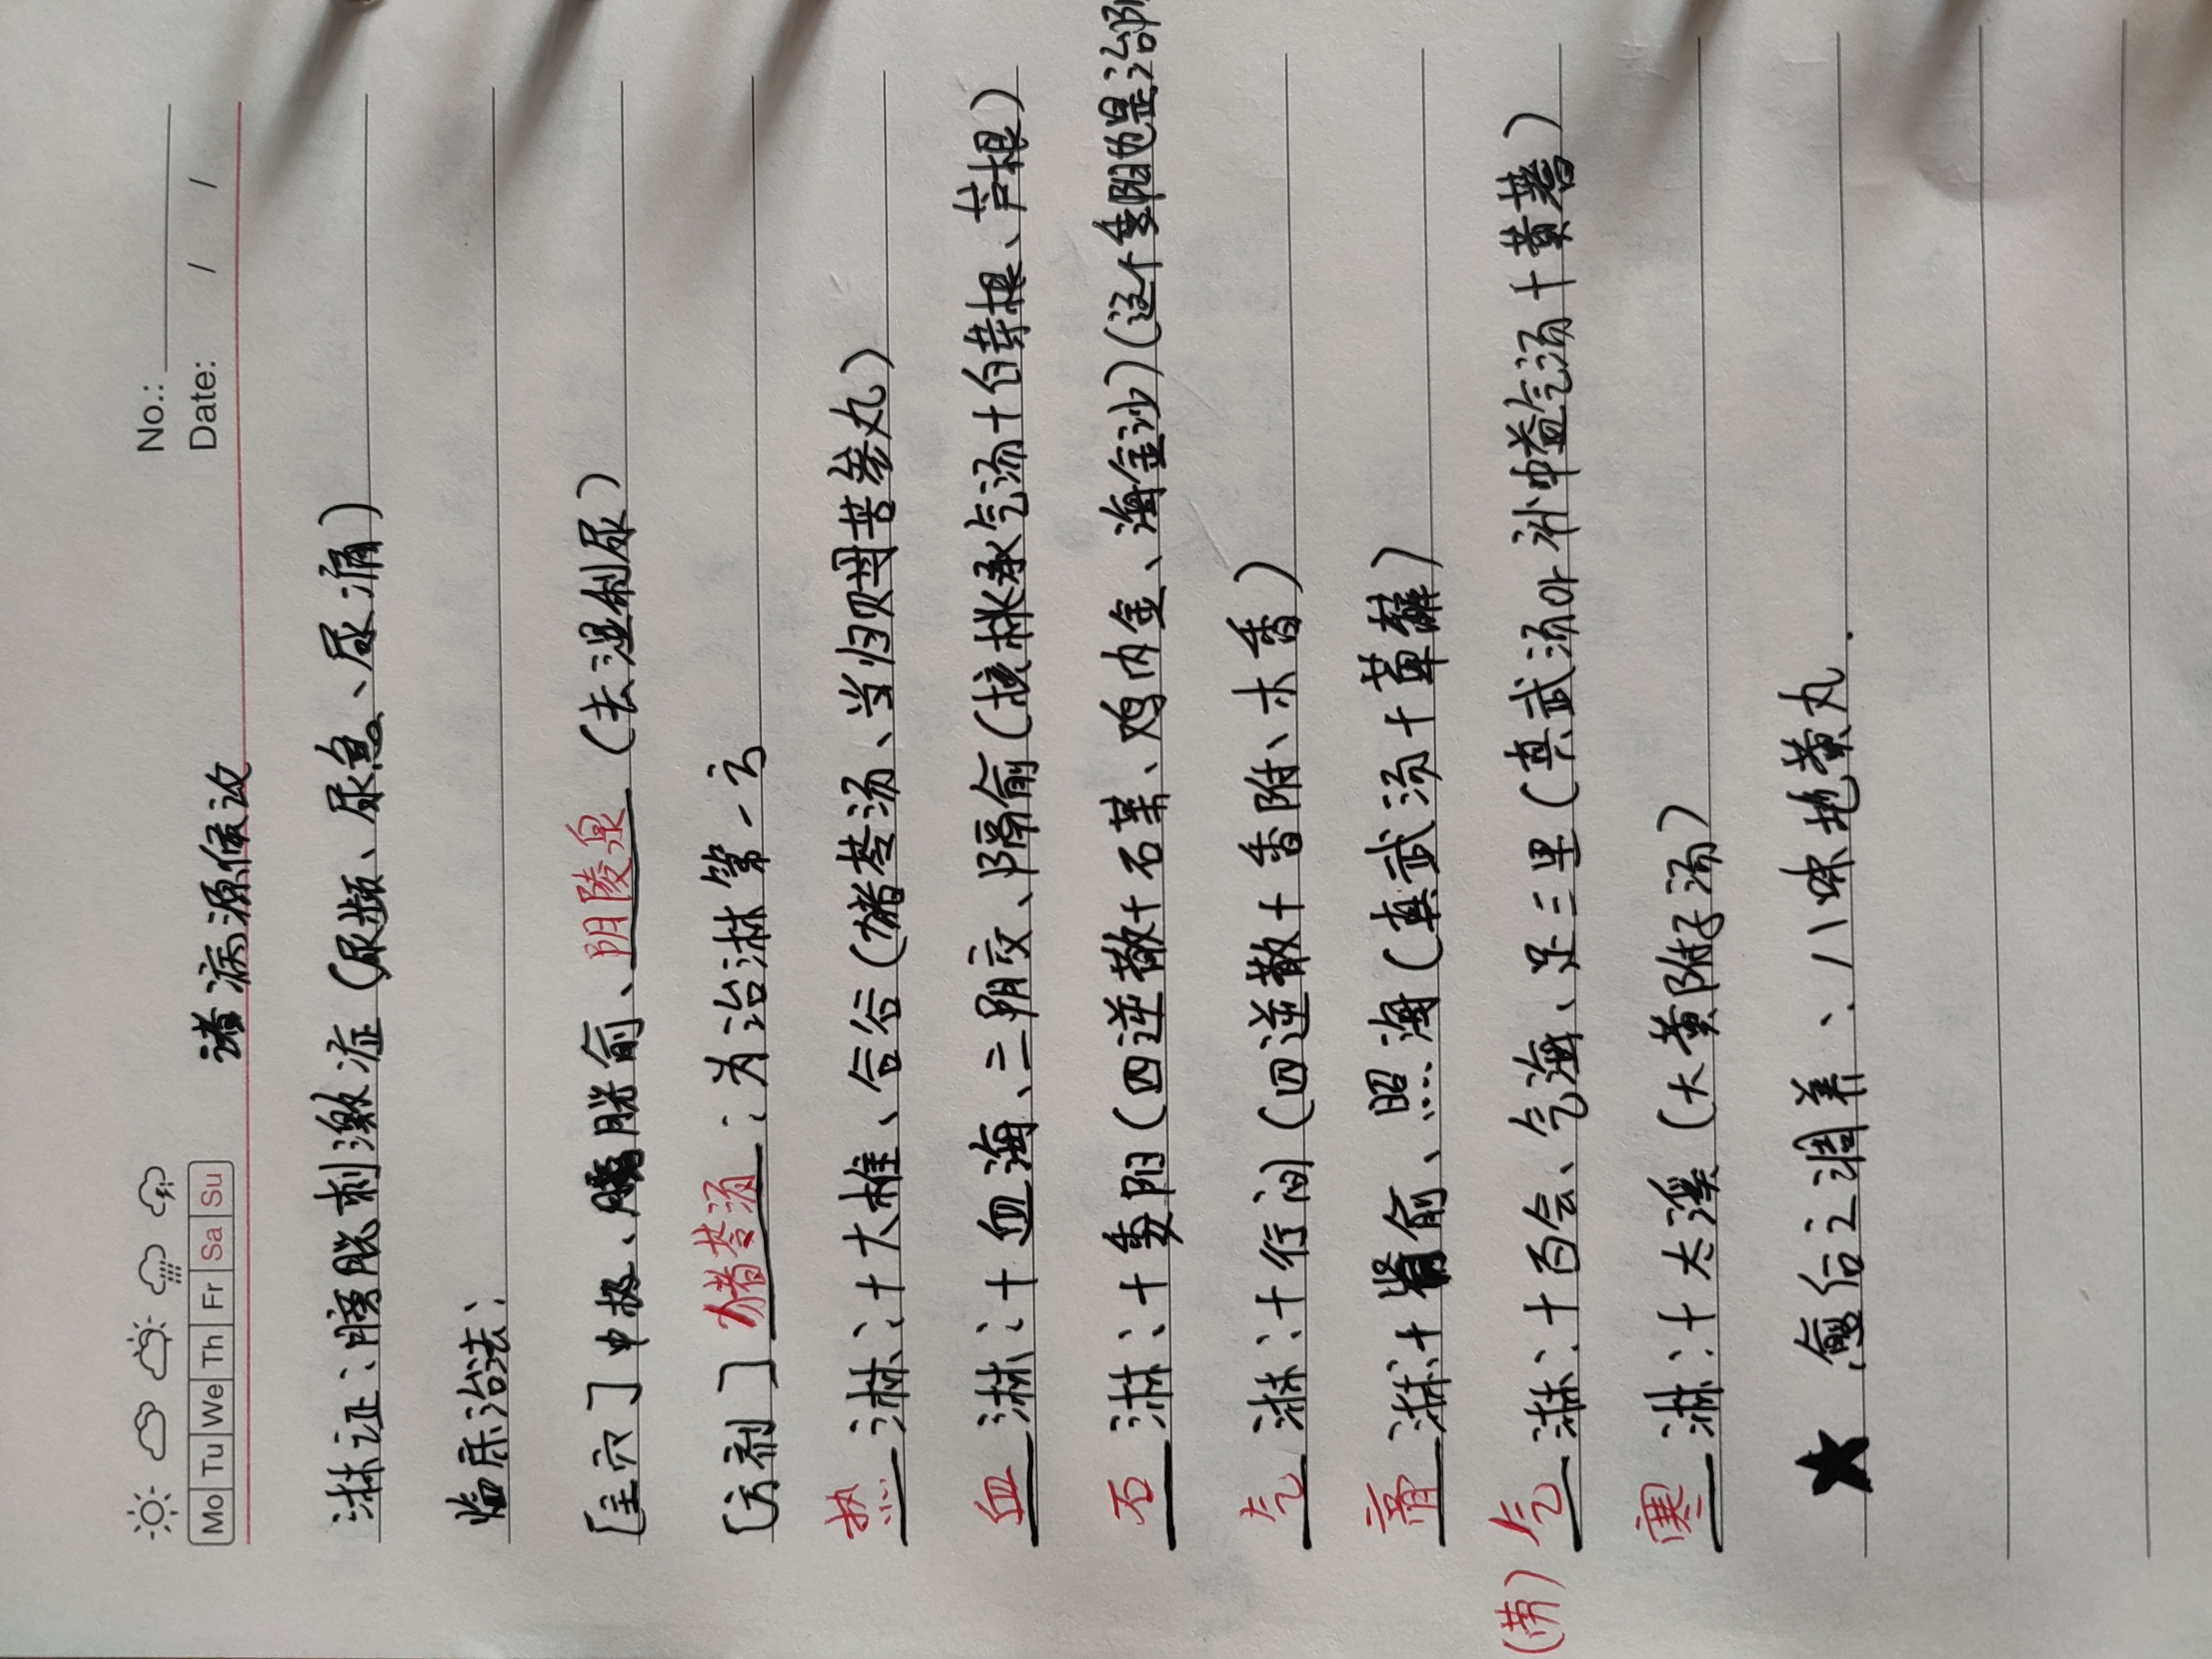 No.:
Date: / /
Mo Tu We Th Fr Sa Su
诸病源候设
淋证:膀胱刺激症(尿频、尿急、尿痛)
临床治法:
[主穴]中极、膀胱俞、阴陵泉(去湿利尿)
[方剂]猪苓汤:为治淋第一方
热淋:十大椎、合谷(猪苓汤、当归贝母苦参丸)
血淋:十血海、三阴交、隔俞(核桃承气汤十白茅根、芦根)
石淋:十委阳(四逆散十石苇、鸡内金、海金沙)(这个委阳也是治
气淋:十行间(四逆散十香附、木香)
膏淋:十肾俞、照海(真武汤十萆薢)
(劳)气淋:十百会、气海、足三里(真武汤or补中益气汤十黄蓍)
寒淋:十太溪(大黄附子汤)
★愈后之调养:八味地黄丸.